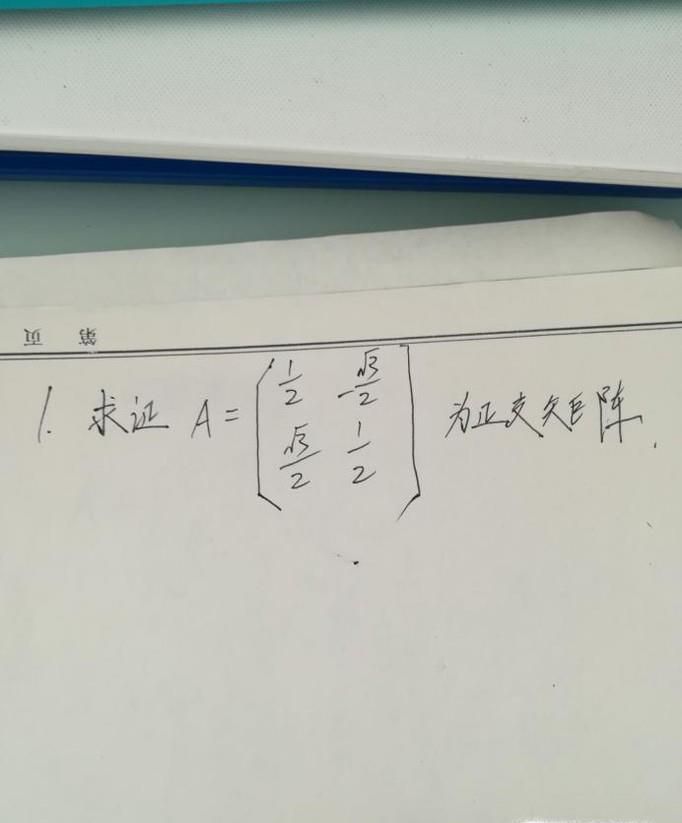 第 页
1. 求证 A = \begin{pmatrix} \frac{1}{2} & -\frac{\sqrt{3}}{2} \\ \frac{\sqrt{3}}{2} & \frac{1}{2} \end{pmatrix} 为正交矩阵.